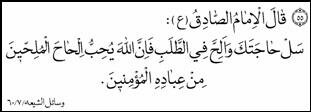 ﴿۵۵﴾ قَالَ الْاِمَامُ الصَّادِقُ (ع):
سَلْ حَاجَتَكَ وَاَلِحَّ فِي الطَّلَبِ فَاِنَّ اللهَ يُحِبُّ اِلْحَاحَ الْمُلِحّٖينَ
مِنْ عِبَادِهِ الْمُؤْمِنٖينَ.
وسائل الشیعه/۷/۶۰